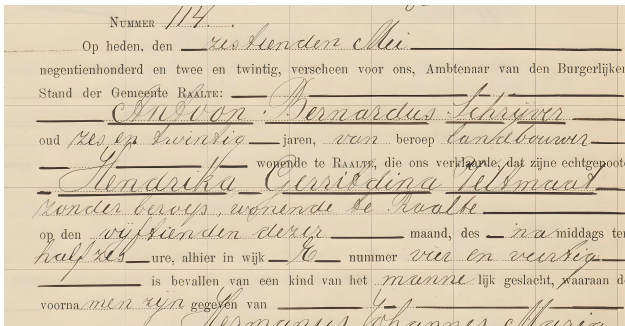 NUMMER 114.
Op heden, den zestienden Mei
negentienhonderd en twee en twintig, verscheen voor ons, Ambtenaar van den Burgerlijken
Stand der Gemeente RAALTE:
Antoon Bernardus Schrijver
oud zes en twintig jaren, van beroep landbouwer
wonende te RAALTE, die ons verklaarde, dat zijne echtgenoote
Hendrika Gerritdina Veltmaat
zonder beroep, wonende te Raalte
op den vijftienden dezer maand, des namiddags ten
half zes ure, alhier in wijk E nummer vier en veertig
is bevallen van een kind van het mannelijk geslacht, waaraan de
voornamen zyn gegeven van
Hermanus Johannes Maria